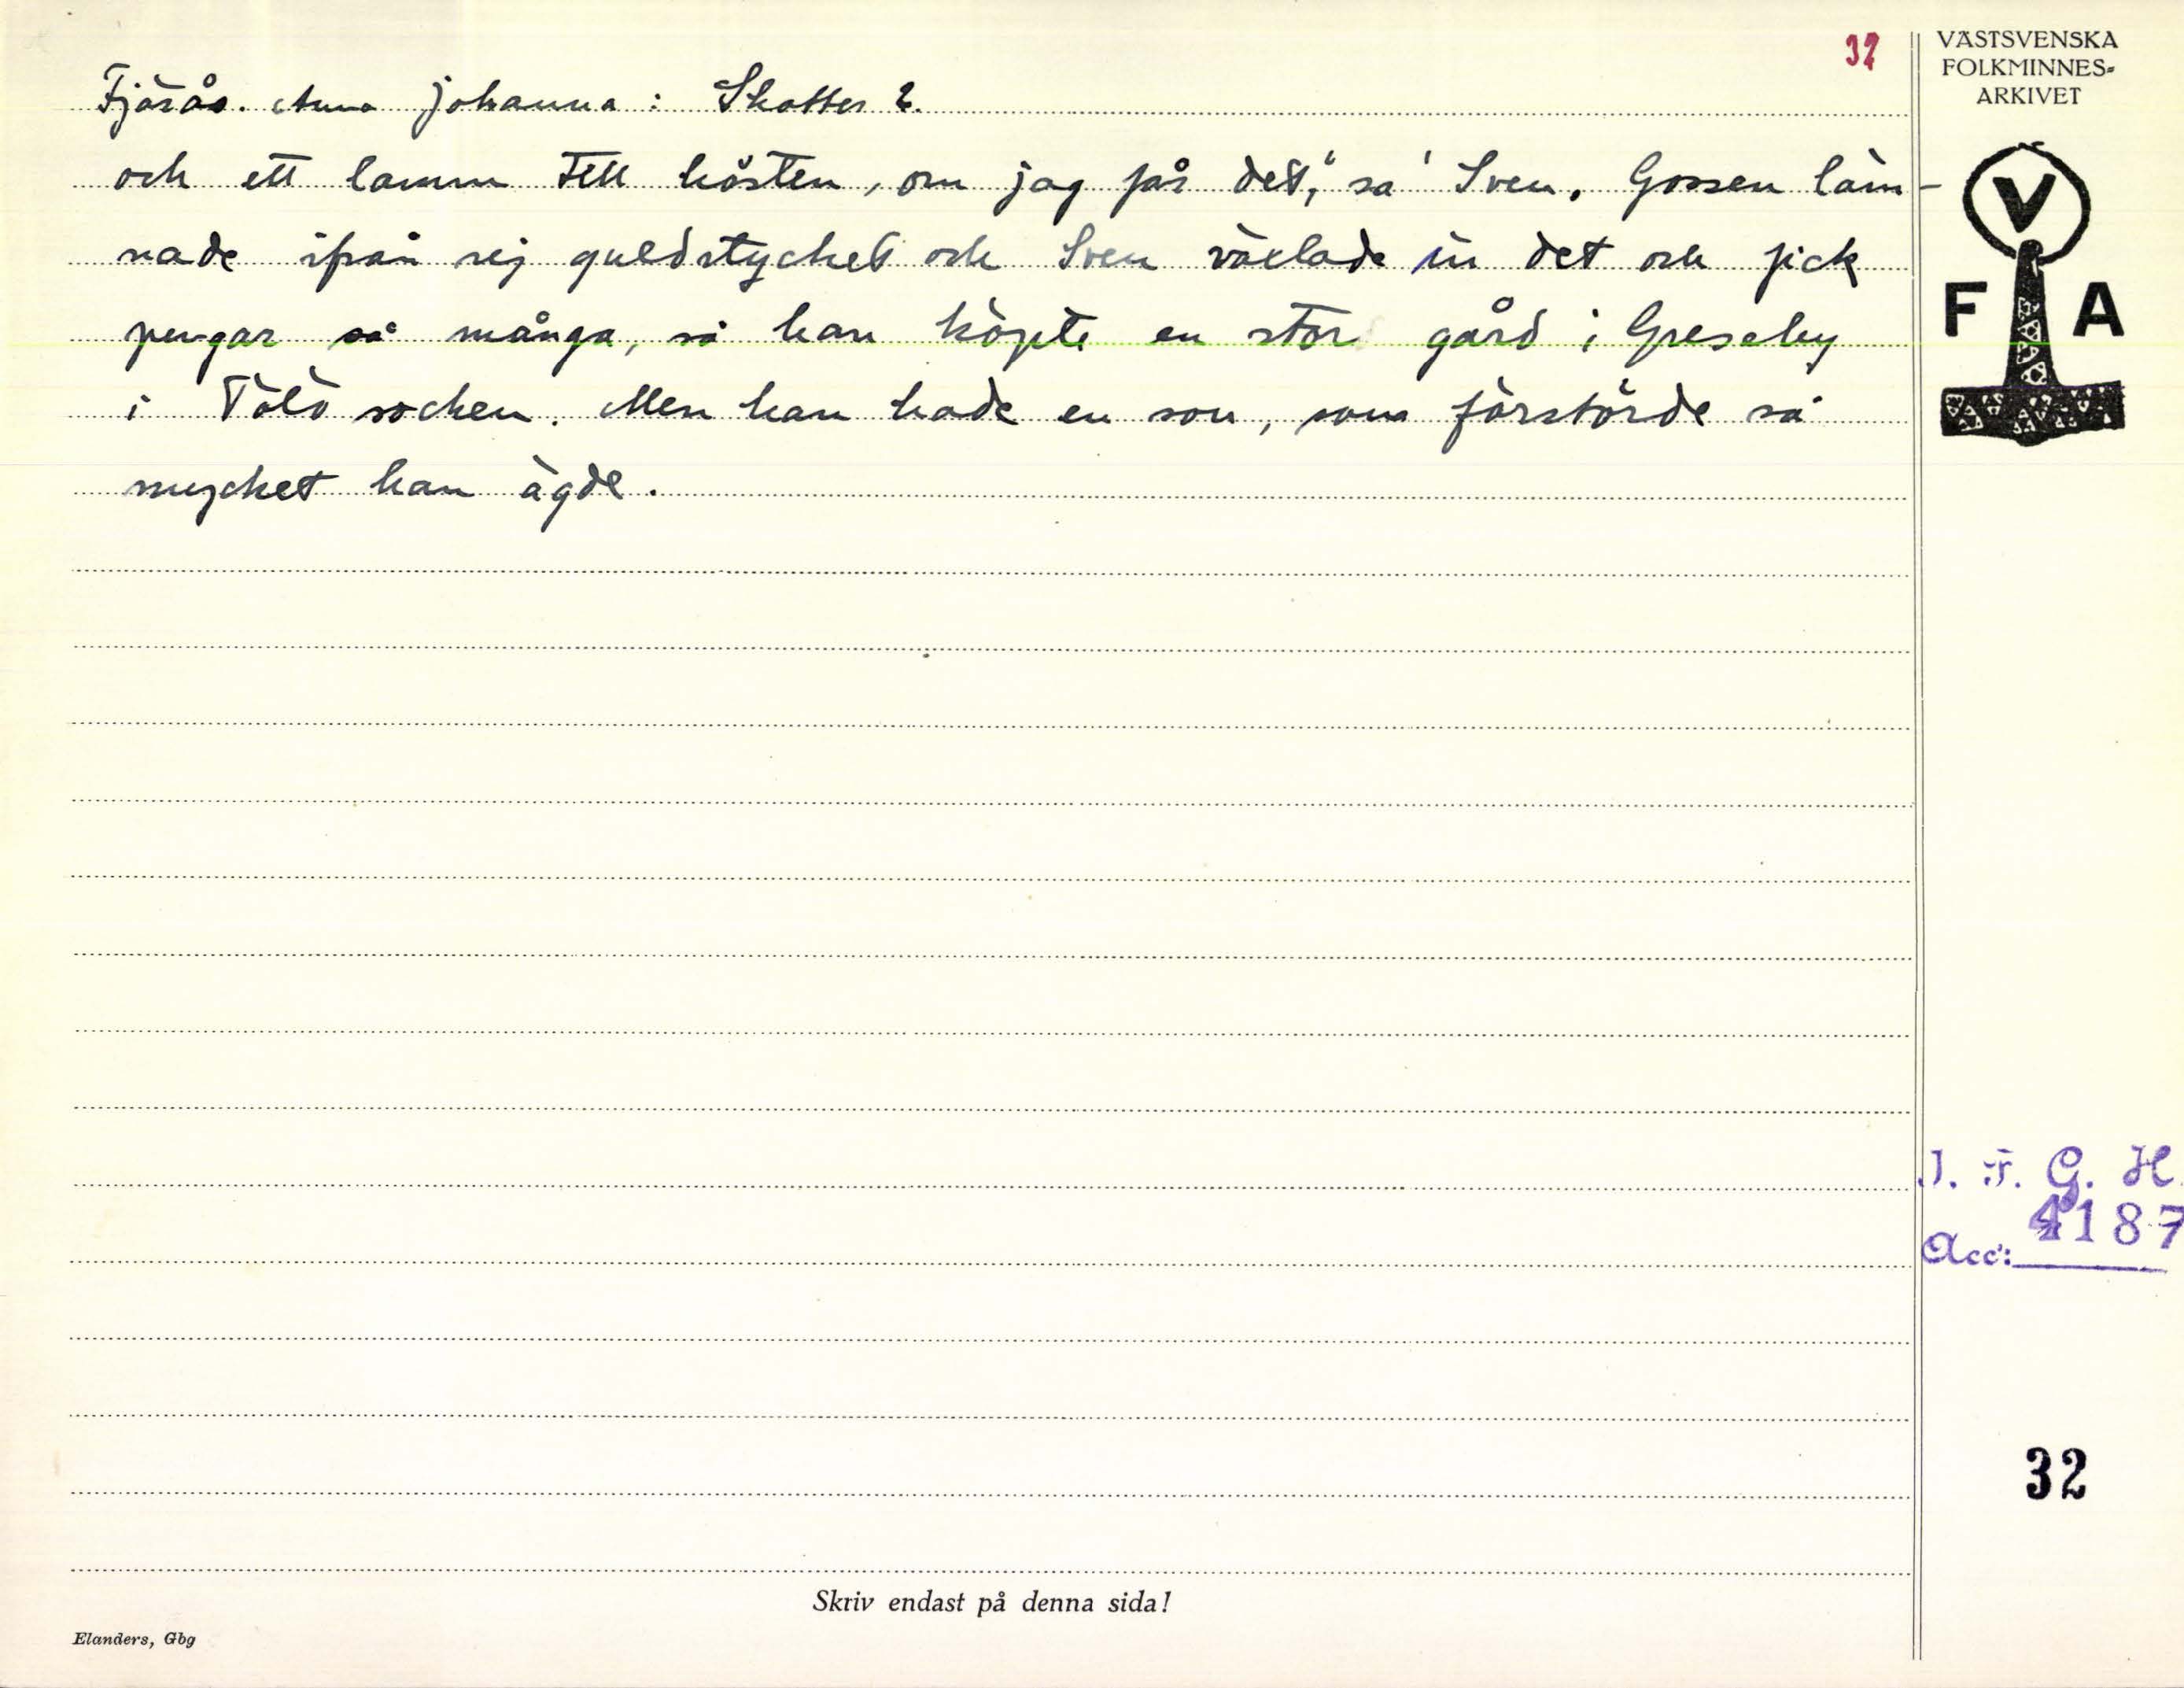 32
Fjärås. Anna Johanna: Skatter 2.
och ett lamm till hösten, om jag får det," sa' Sven. Gossen läm-
nade ifrån sej guldstycket och Sven växlade in det och fick
pengar så många, så han köpte en stor gård i Greseby
i Tölö socken. Men han hade en son, som förstörde så
mycket han ägde.
VÄSTSVENSKA
FOLKMINNES-
ARKIVET
V
F A
I. F. G. H.
Acc: 4187
32
Skriv endast på denna sida!
Elanders, Gbg